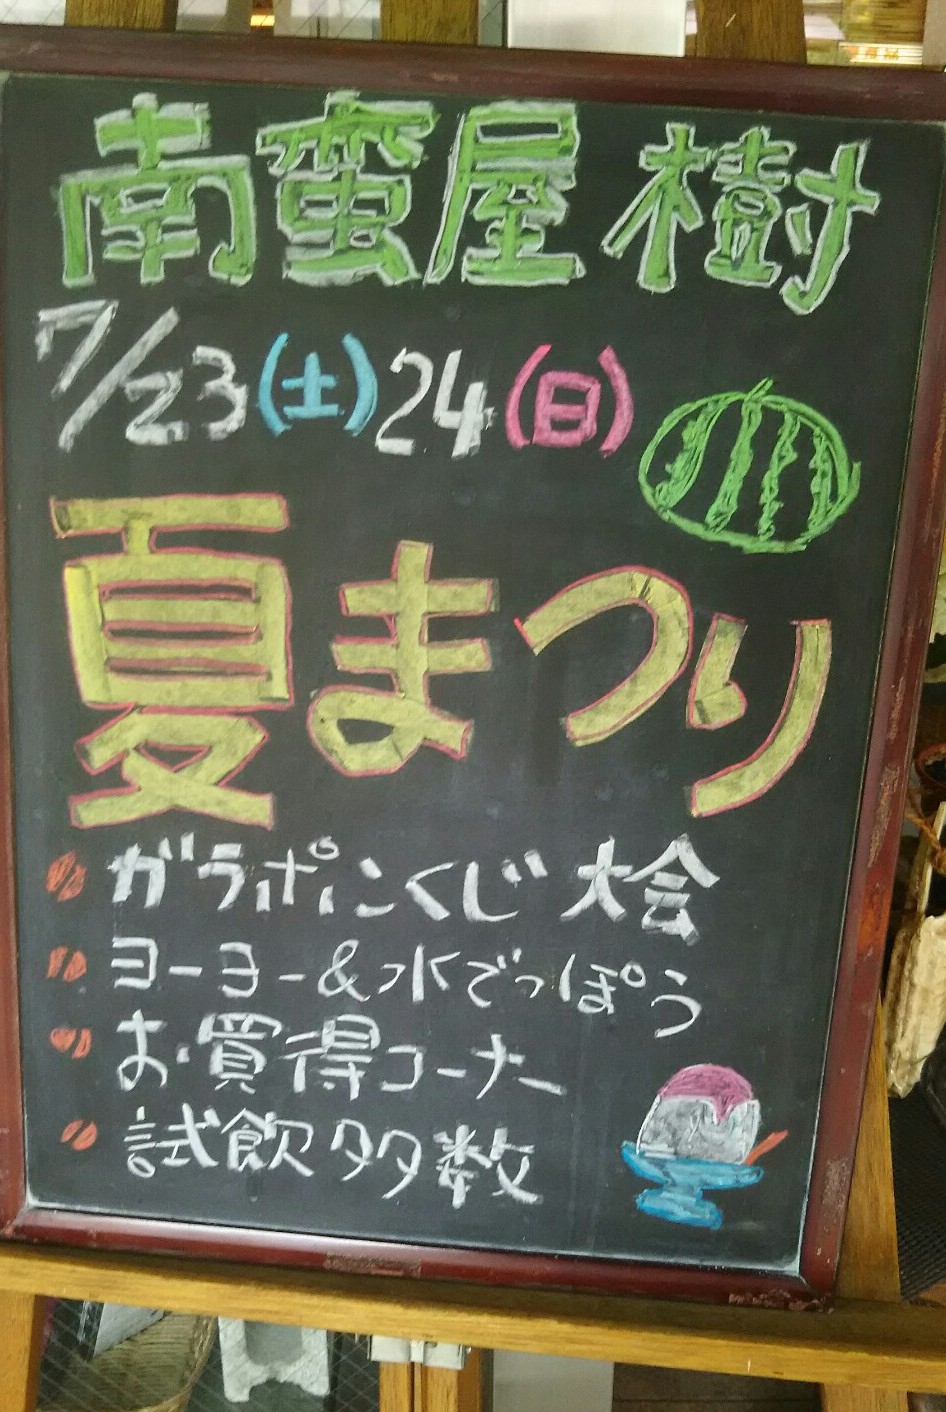 南蛮屋 樹
7/23(土)24(日)
夏まつり
ガラポンくじ大会
ヨーヨー&水でっぽう
お買得コーナー
試飲多数